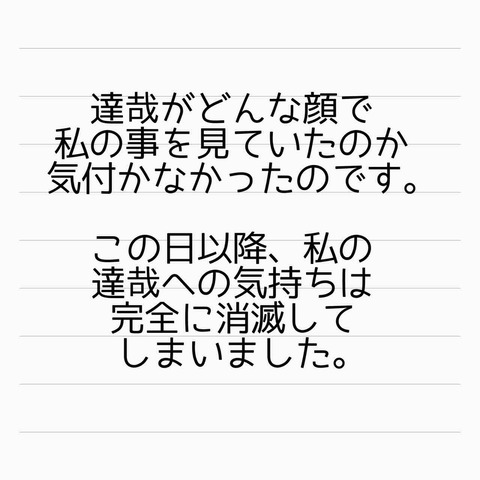 達哉がどんな顔で
私の事を見ていたのか
気付かなかったのです。
この日以降、私の
達哉への気持ちは
完全に消滅して
しまいました。